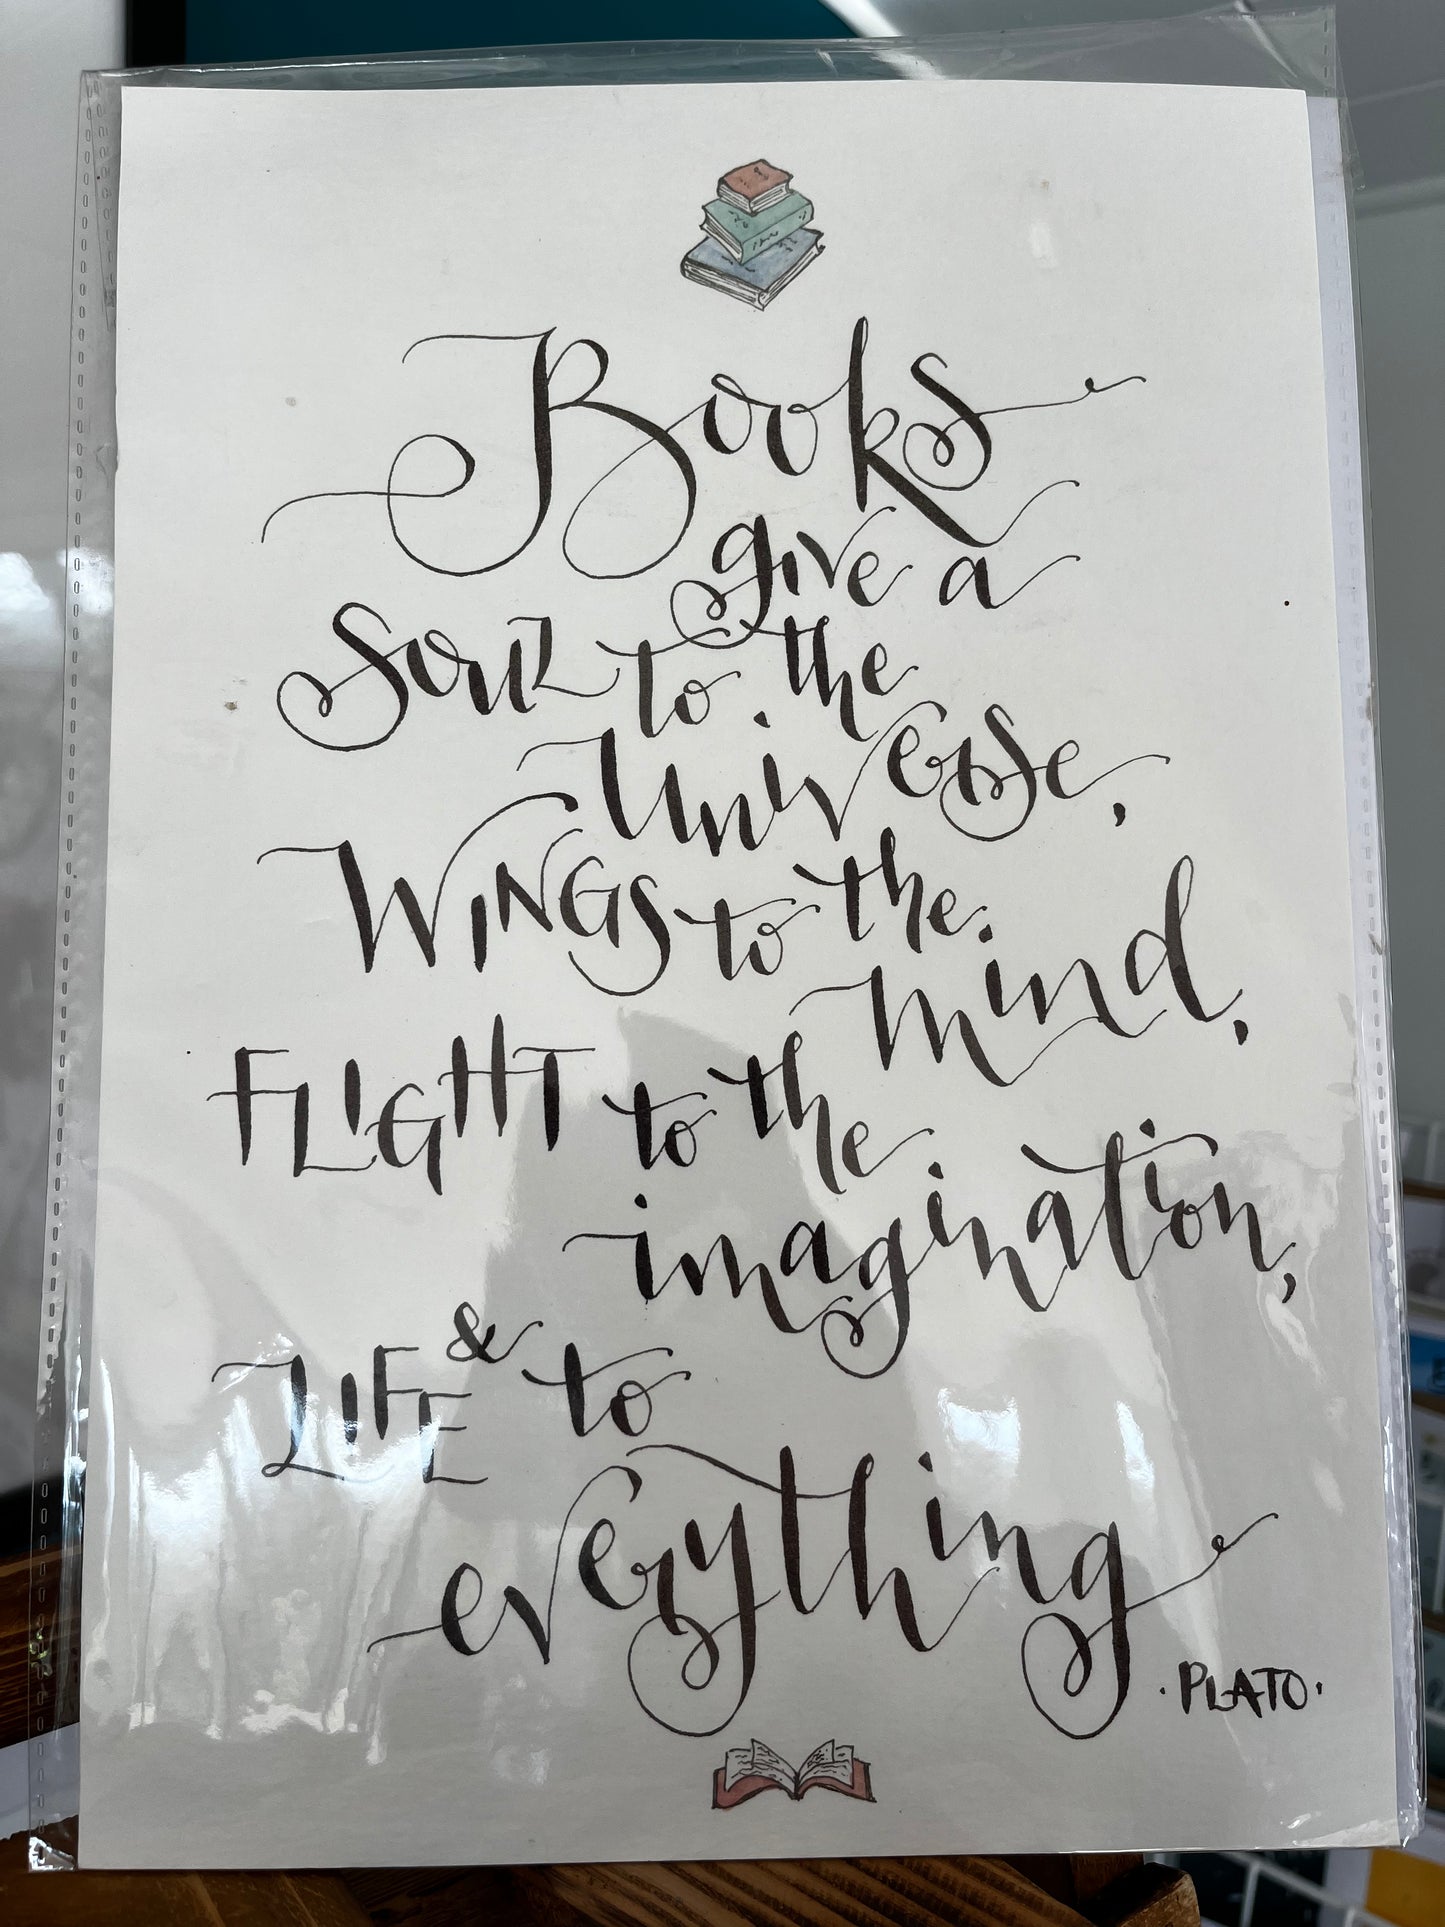 Books
give a
Soul to the
Universe,
WINGS to the
Mind,
FLIGHT to the
imagination,
LIFE & to
everything
·PLATO·